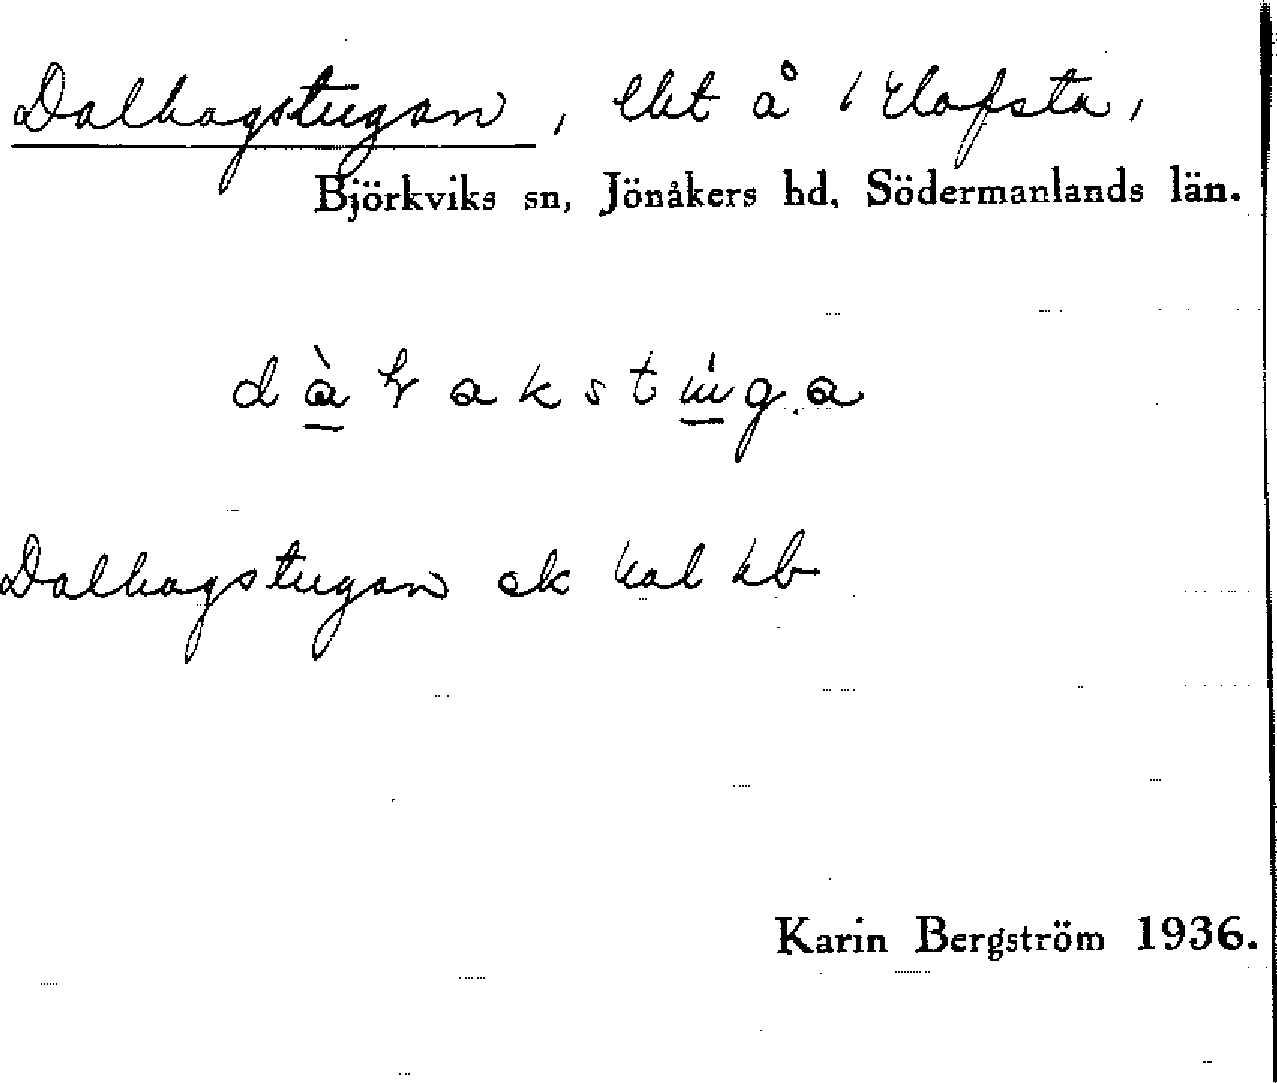 Dalhagstugan, lht å 1 Elofsta,
Björkviks sn, Jönåkers hd, Södermanlands län.
Dalhagstugan ek kal hb
Karin Bergström 1936.